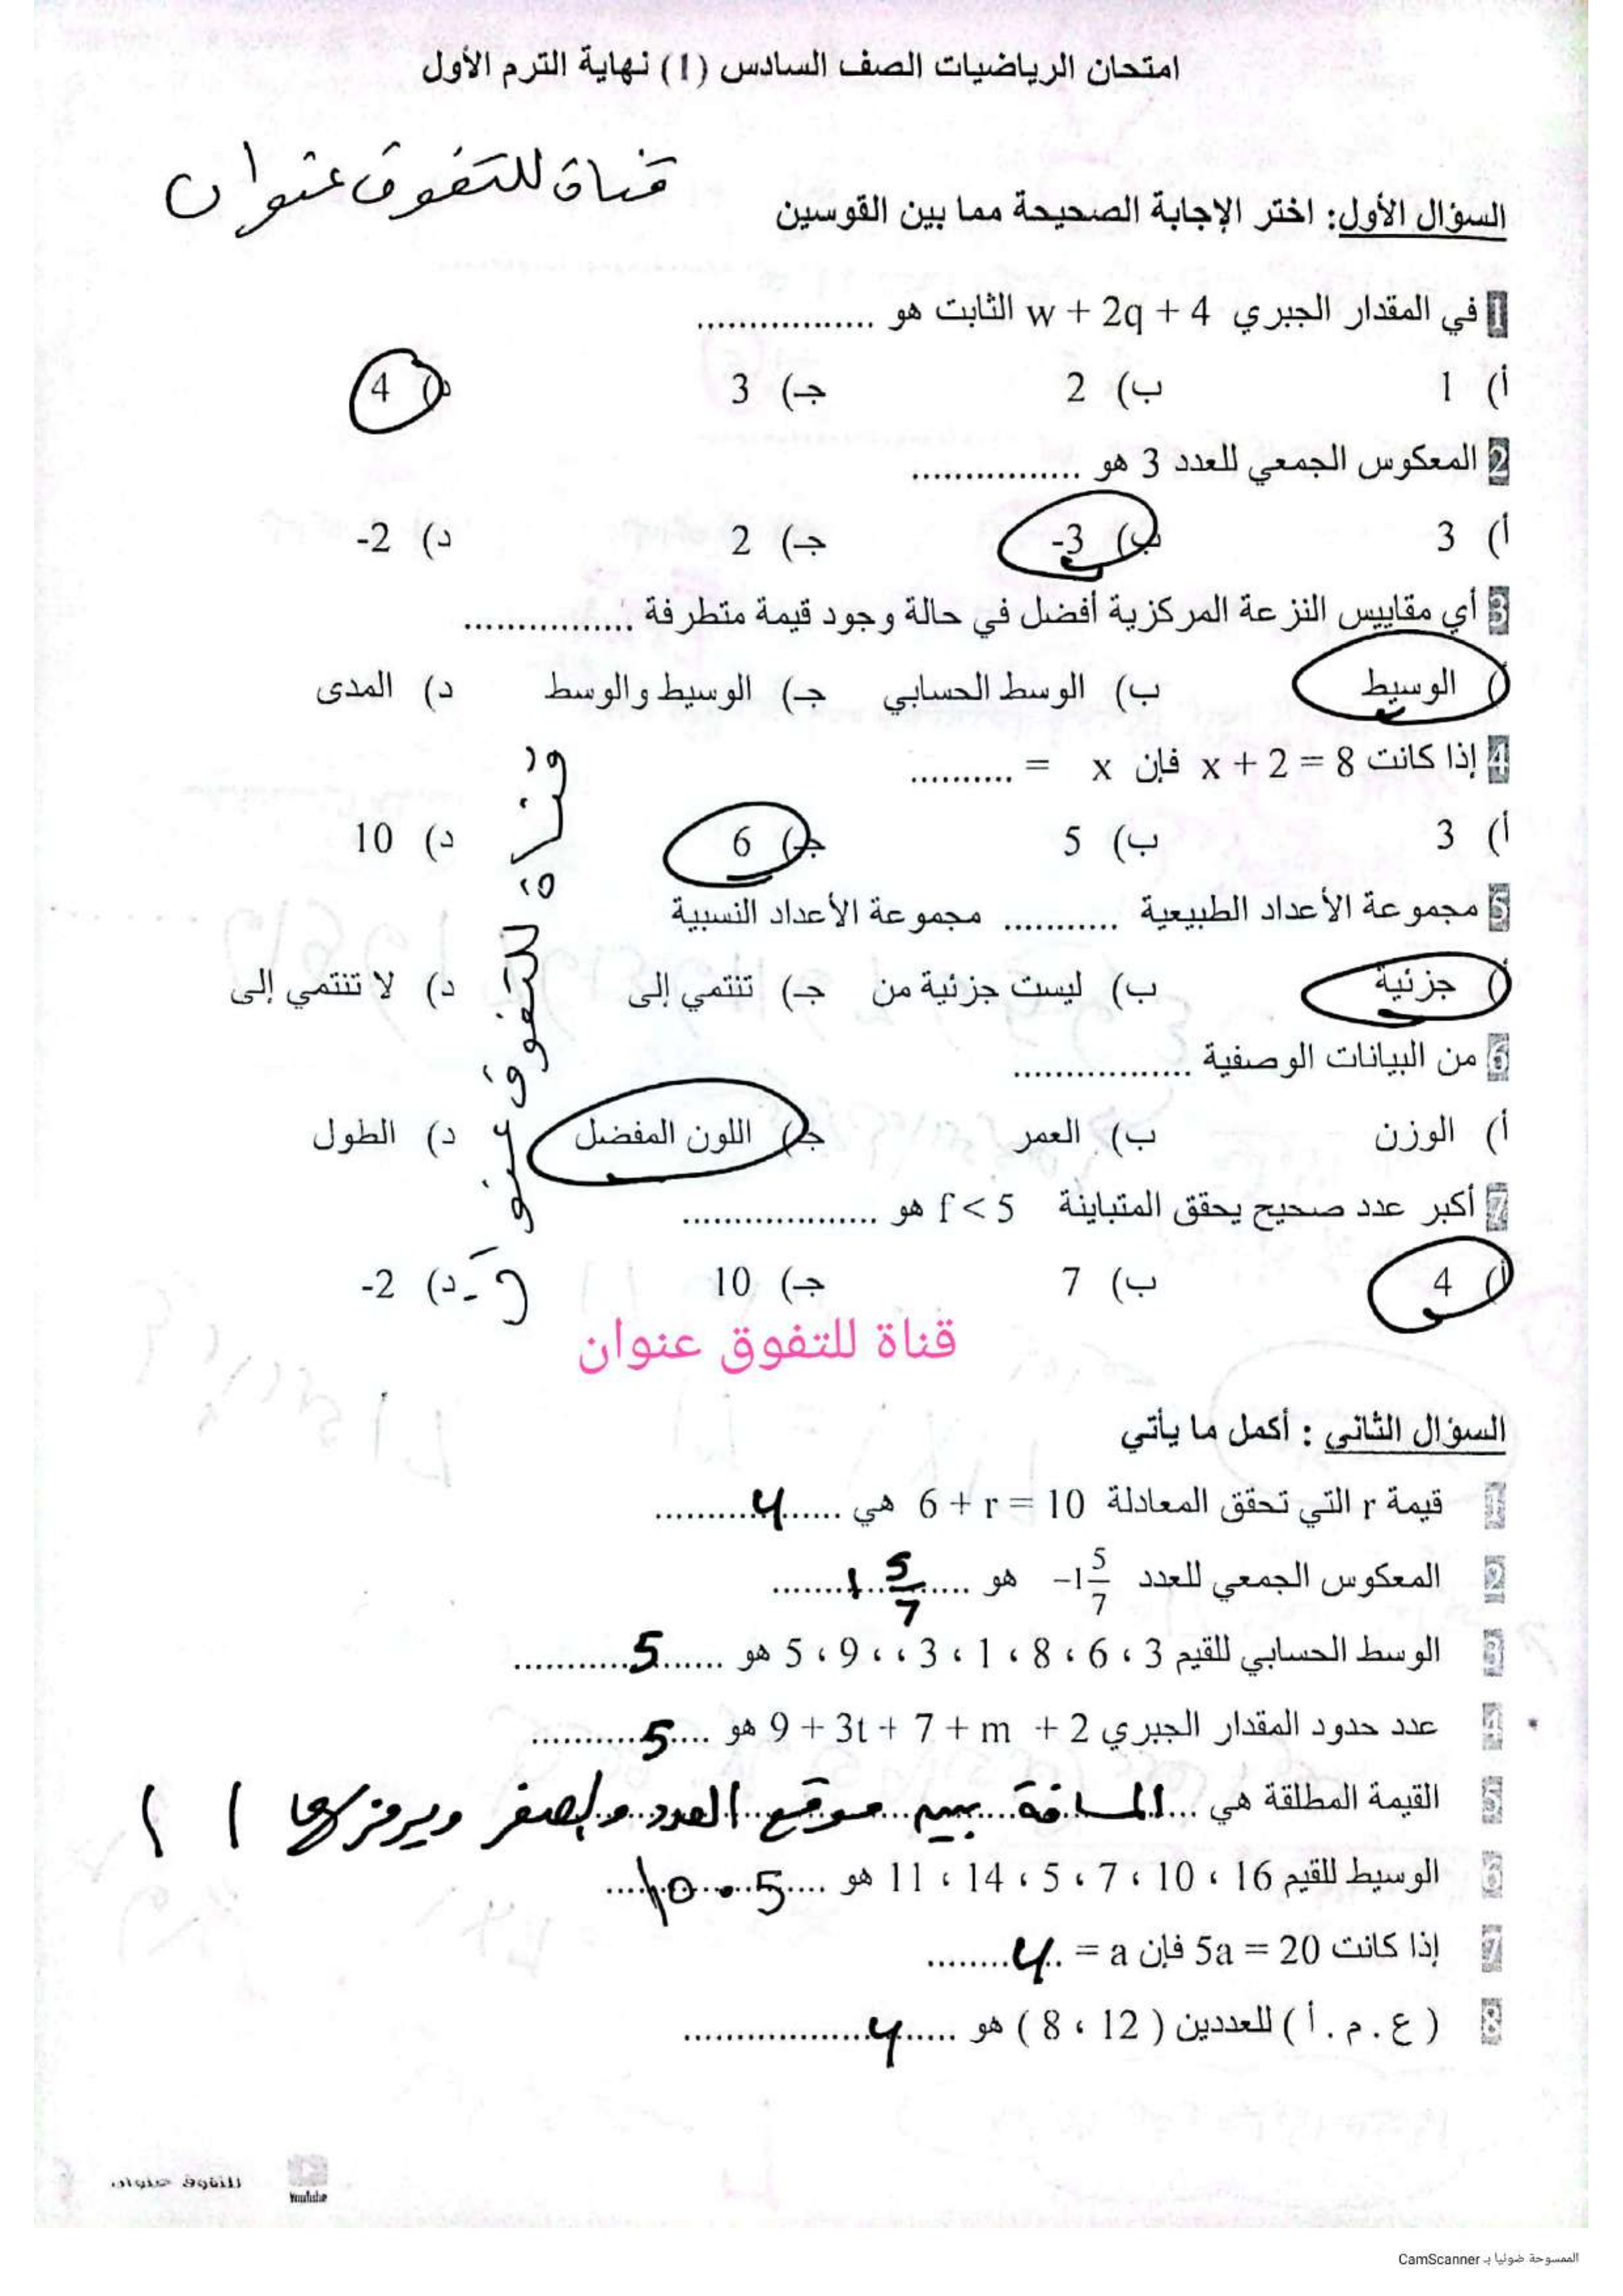 امتحان الرياضيات الصف السادس (1) نهاية الترم الأول
قناة للتفوق عنوان
السؤال الأول: اختر الإجابة الصحيحة مما بين القوسين
1 في المقدار الجبري w + 2q + 4 الثابت هو .................
أ) 1 ب) 2 جـ) 3 د) 4
2 المعكوس الجمعي للعدد 3 هو ................
أ) 3 ب) -3 جـ) 2 د) -2
3 أي مقاييس النزعة المركزية أفضل في حالة وجود قيمة متطرفة ................
أ) الوسيط ب) الوسط الحسابي جـ) الوسيط والوسط د) المدى
4 إذا كانت x + 2 = 8 فإن x = ..........
أ) 3 ب) 5 جـ) 6 د) 10
5 مجموعة الأعداد الطبيعية ........... مجموعة الأعداد النسبية
أ) جزئية ب) ليست جزئية من جـ) تنتمي إلى د) لا تنتمي إلى
6 من البيانات الوصفية .................
أ) الوزن ب) العمر جـ) اللون المفضل د) الطول
7 أكبر عدد صحيح يحقق المتباينة f < 5 هو ...................
أ) 4 ب) 7 جـ) 10 د) -2
قناة للتفوق عنوان
قناة للتفوق عنوان
السؤال الثاني : أكمل ما يأتي
1 قيمة r التي تحقق المعادلة 6 + r = 10 هي ......4...........
2 المعكوس الجمعي للعدد -1 5/7 هو ......1 5/7........
3 الوسط الحسابي للقيم 3 ، 6 ، 8 ، 1 ، 3 ، ، 9 ، 5 هو ......5............
4 عدد حدود المقدار الجبري 9 + 3t + 7 + m + 2 هو ....5...........
5 القيمة المطلقة هي ...المسافة بين موقع العدد والصفر ويرمز لها | |
6 الوسيط للقيم 16 ، 10 ، 7 ، 5 ، 14 ، 11 هو ....10.5....
7 إذا كانت 5a = 20 فإن a = ..4........
8 ( ع . م . أ ) للعددين ( 12 ، 8 ) هو .....4..................
للتفوق عنوان
YouTube
الممسوحة ضوئيا بـ CamScanner